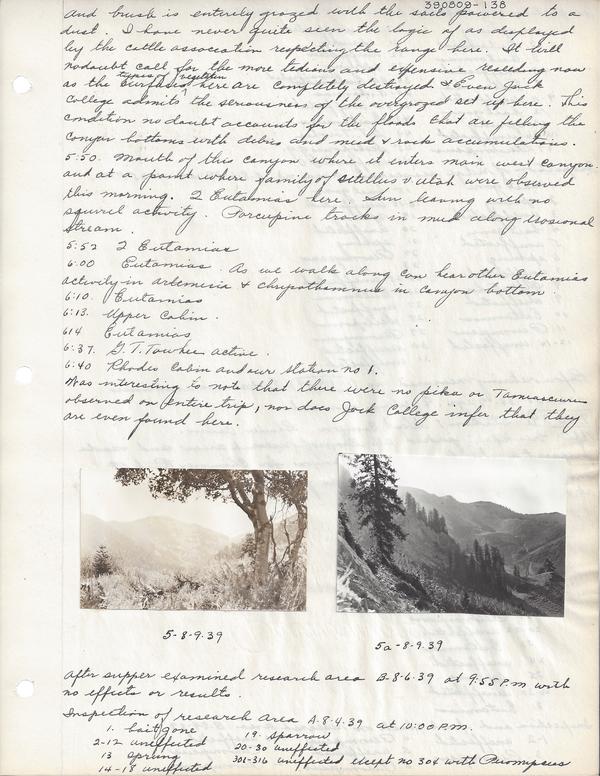 390809-138
and brush is entirely grazed with the soils powered to a
dust. I have never quite seen the logic of as displayed
by the cattle association respecting the range here. It will
nodoubt call for the more tedious and expensive reseeding now
types of vegetation
as the here are completely destroyed & Even Jock
College admits the seriousness of the overgrazed set up here. This
condition no doubt accounts for the floods that are filling the
canyon bottoms with debris and mud & rock accumulations.
5:50. Mouth of this canyon where it enters main west canyon.
and at a point where family of stellus v utah were observed
this morning. 2 Eutamias here. Sun leaving with no
squirril activity. Porcupine tracks in mud along erosional
stream.
5:52 2 Eutamias
6:00 Eutamias. As we walk along can hear other Eutamias
activity in artemesia & chrysothamnus in canyon bottom.
6:10. Eutamias
6:13. Upper Cabin.
614 Eutamias
6:37. G.T. Towhee active.
6:40 Rhodes Cabin and our station no 1.
Was interesting to note that there were no pika or Tamiasciurus
observed on entire trip, nor does Jock College infer that they
are even found here.
5-8-9.39
5a-8-9.39
After supper examined research area B-8-6-39 at 9:55 P.m with
no effects or results.
Inspection of research Area A-8-4-39 at 10:00 P.M.
1. bait gone
19. sparrow
2-12 uneffected
20-30 uneffected
13 sprung
301-316 uneffected except no 304 with Peromyscus
14-18 uneffected